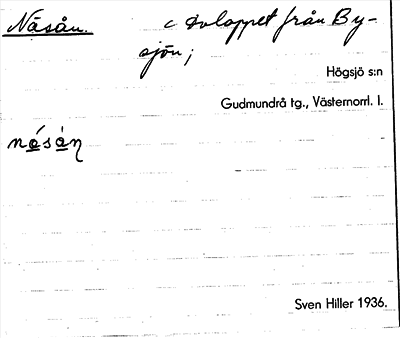 Näsån. c avloppet från By-
sjön;
Högsjö s:n
Gudmundrå tg., Västernorrl. l.
nåsån
Sven Hiller 1936.